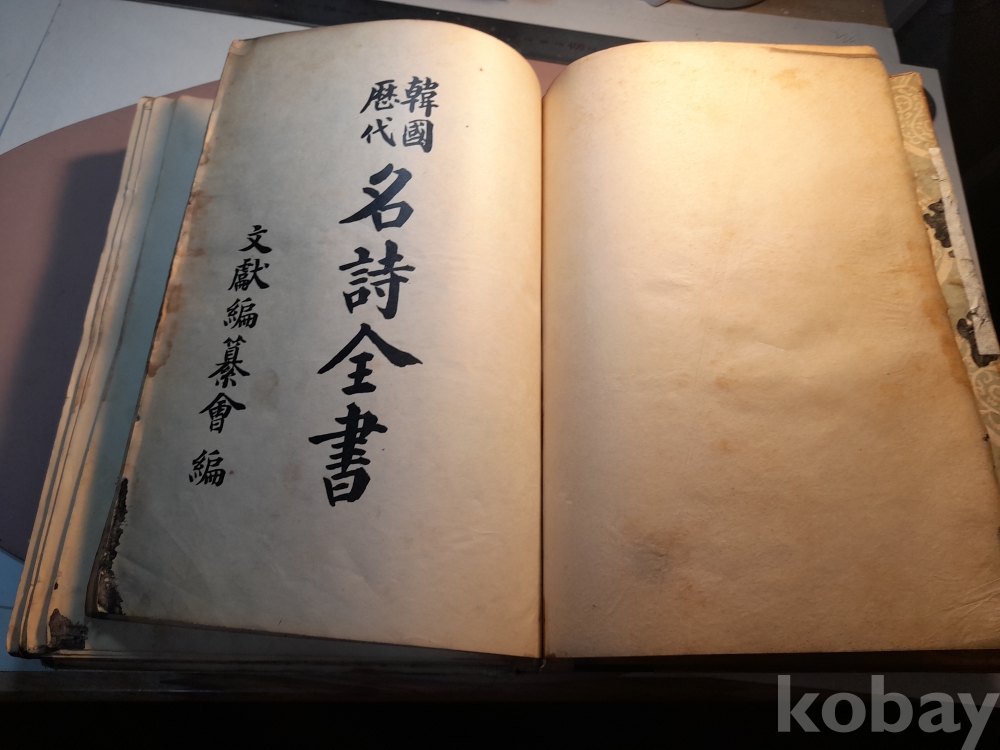 韓國
歷代
名詩全書
文獻編纂會 編
kobay